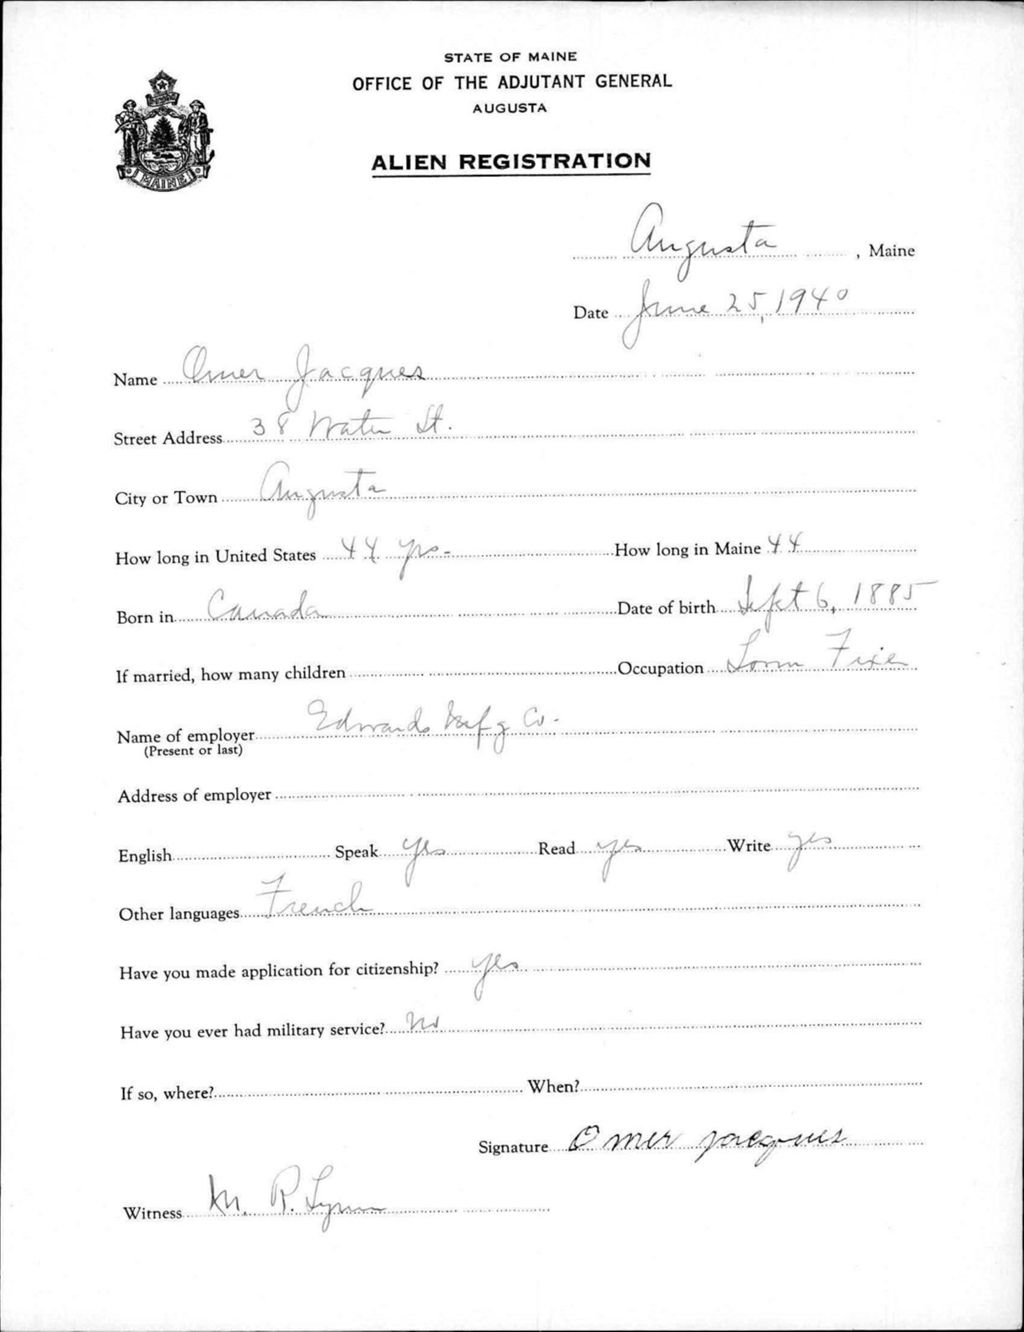 STATE OF MAINE
OFFICE OF THE ADJUTANT GENERAL
AUGUSTA
MAINE
ALIEN REGISTRATION
Augusta, Maine
Date June 25, 1940
Name Omer Jacques
Street Address 38 Water St.
City or Town Augusta
How long in United States 44 yrs- How long in Maine 44
Born in Canada Date of birth Sept 6, 1885
If married, how many children Occupation Loom Fixer
Name of employer Edwards Mfg Co.
(Present or last)
Address of employer
English Speak yes Read yes Write yes
Other languages French
Have you made application for citizenship? yes
Have you ever had military service? No
If so, where? When?
Signature Omer Jacques
Witness M. R. Lynn